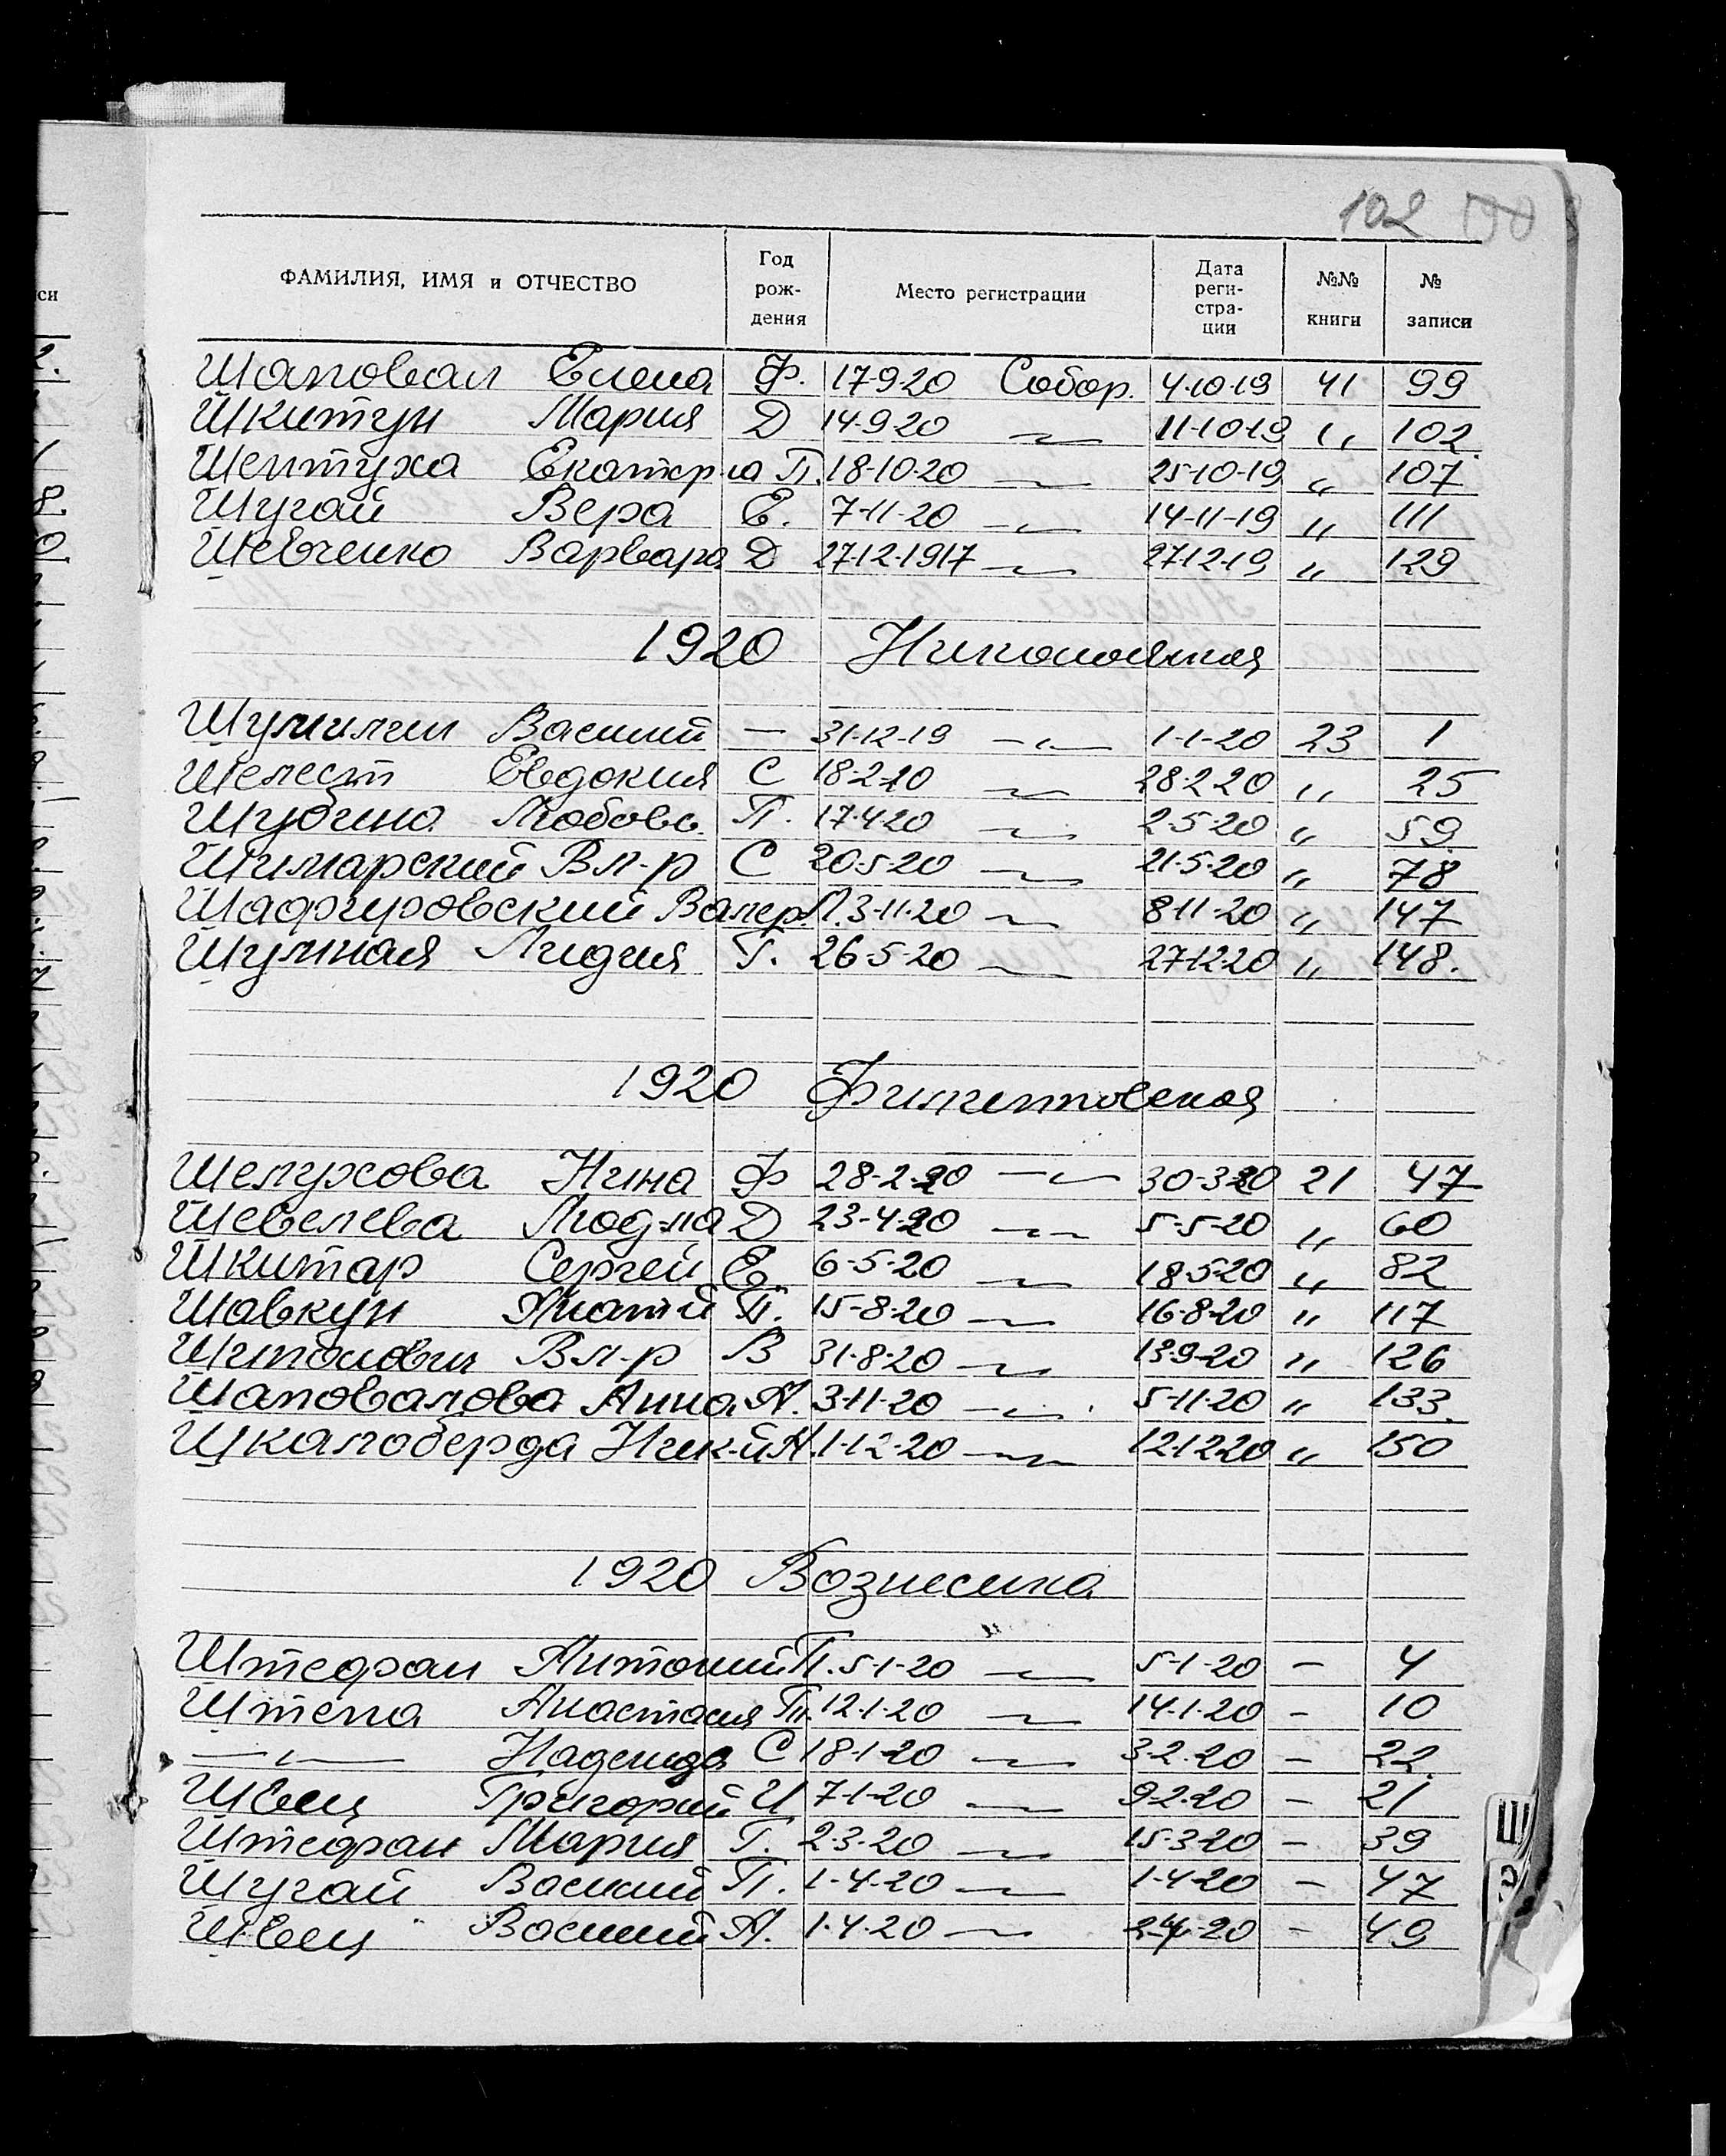 102
ФАМИЛИЯ, ИМЯ и ОТЧЕСТВО Год рож- дения Место регистрации Дата реги- стра- ции №№ книги № записи
Шаповал Елена Ф. 17-9-20 Собор. 4-10-19 41 99
Шкитун Мария Д 14-9-20 —〃— 11-10-19 〃 102
Шептуха Екатер-на П. 18-10-20 —〃— 25-10-19 〃 107
Шугай Вера Е. 7-11-20 —〃— 14-11-19 〃 111
Шевченко Варвара Д 27-12-1917 —〃— 27-12-19 〃 129
1920 Николаевская
Шумилин Василий — 31-12-19 —〃— 1-1-20 23 1
Шелест Евдокия С 18-2-20 —〃— 28-2-20 〃 25
Шубина Любовь П. 17-4-20 —〃— 2-5-20 〃 59
Шимарский Вл-р С 20-5-20 —〃— 21-5-20 〃 78
Валер. Л. 3-11-20 —〃— 8-11-20 〃 147
Шумная Лидия Г. 26-5-20 —〃— 27-12-20 〃 148.
1920 Филипповская
Шелухова Нина Ф 28-2-20 —〃— 30-3-20 21 47
Шевелева Люд-ла Д 23-4-20 —〃— 5-5-20 〃 60
Шкитар Сергей Е. 6-5-20 —〃— 18-5-20 〃 82
Шавкун Анатй П. 15-8-20 —〃— 16-8-20 〃 117
Вл-р В 31-8-20 —〃— 13-9-20 〃 126
Шаповалова Анна А. 3-11-20 —〃— 5-11-20 〃 133
Шкалоберда Ник-й Н. 1-12-20 —〃— 12-12-20 〃 150
1920 Вознесенка
Штефан Антоний П. 5-1-20 —〃— 5-1-20 — 4
Штепа Анастасия П. 12-1-20 —〃— 14-1-20 — 10
—〃— Надежда С 18-1-20 —〃— 3-2-20 — 22
Швец Григорий И 7-1-20 —〃— 9-2-20 — 21
Штефан Мария Г. 2-3-20 —〃— 15-3-20 — 39
Шугай Василий П. 1-4-20 —〃— 1-4-20 — 47
Швец Василий А. 1-4-20 —〃— 2-4-20 — 49